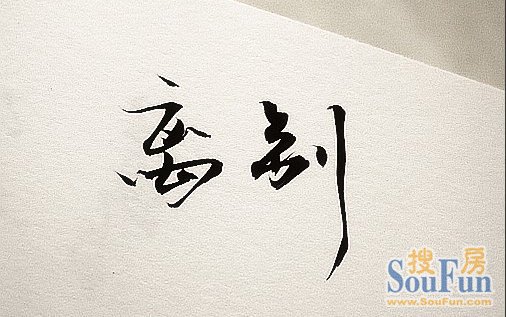 离别
搜房
SouFun
www.SouFun.com